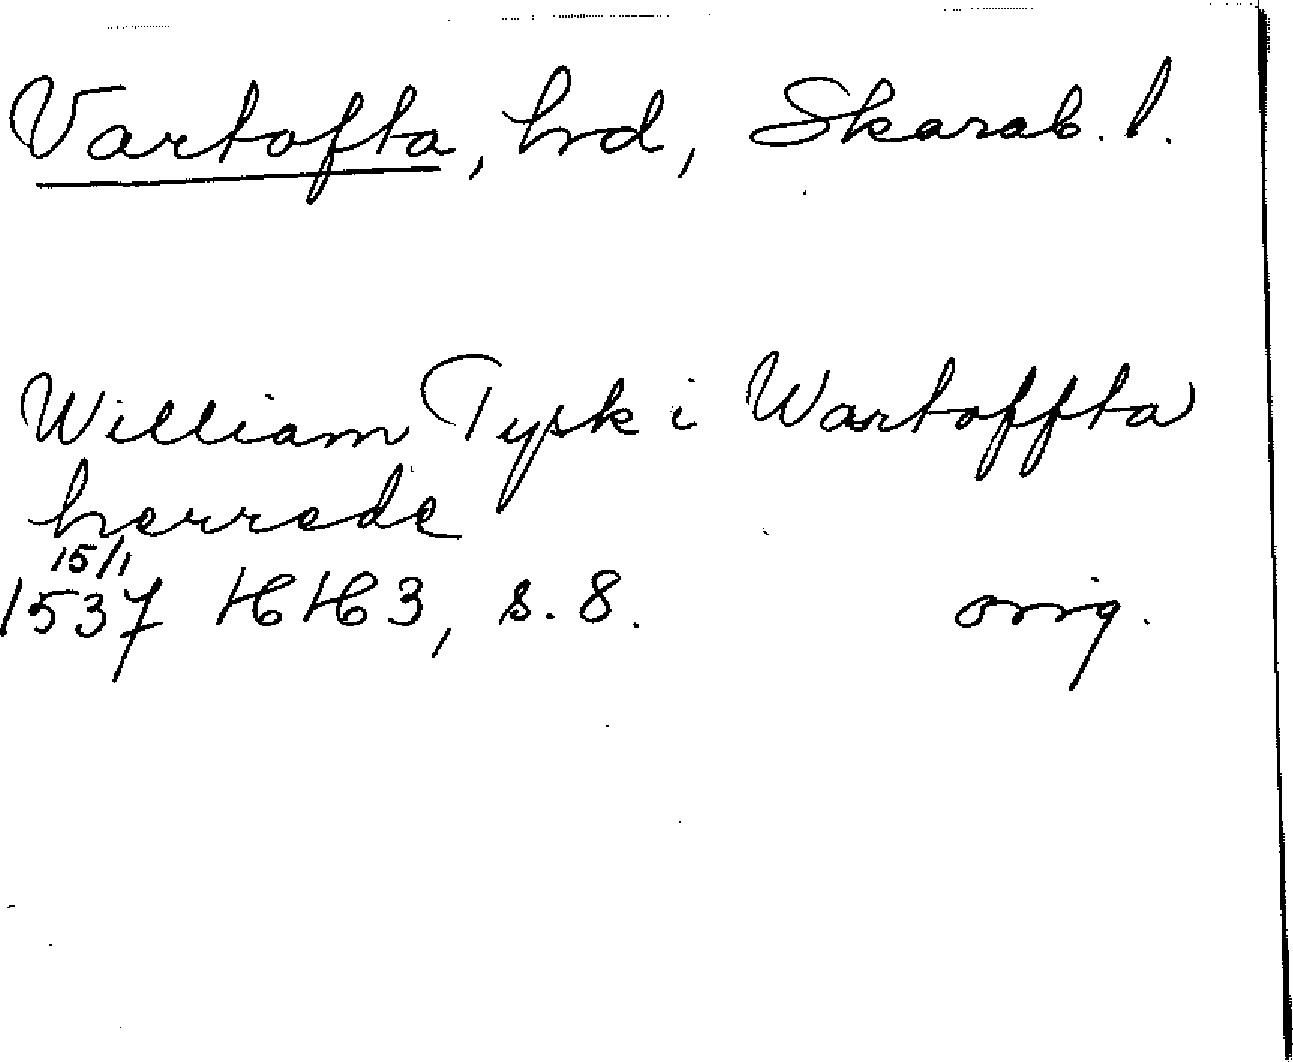 Vartofta, hrd, Skarab. l.
William Tysk i Wartoffta
herrede
15/1
1537 HH 3, s. 8. orig.